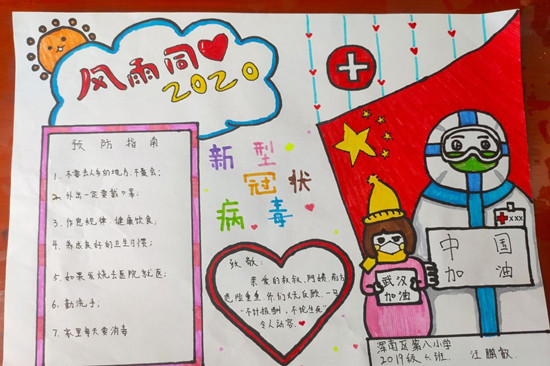 风雨同
2020
新型
冠状
病毒
预防指南
1、不要去人多的地方,不聚会;
2、外出一定要戴口罩;
3、作息规律,健康饮食;
4、养成良好的卫生习惯;
5、如果发烧去医院就医;
6、勤洗手;
7、家里每天要消毒
致敬:
亲爱的叔叔、阿姨,
危险重重,你们义无反顾,
"不计报酬,不论生死"
令人动容。
武汉
加油
中国
加油
xxx
浑南区第八小学
2019级 班 汪